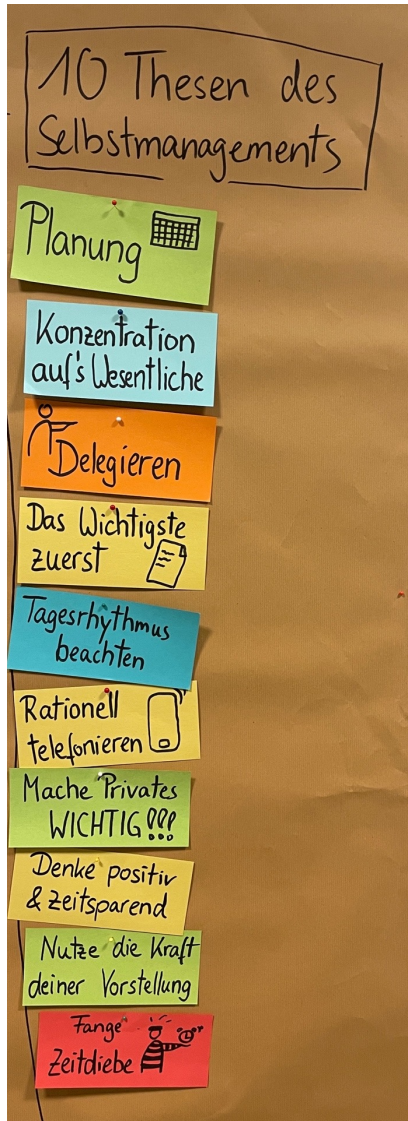 10 Thesen des
Selbstmanagements
Planung
Konzentration
auf's Wesentliche
Delegieren
Das Wichtigste
zuerst
Tagesrhythmus
beachten
Rationell
telefonieren
Mache Privates
WICHTIG!!!
Denke positiv
& zeitsparend
Nutze die Kraft
deiner Vorstellung
Fange
Zeitdiebe